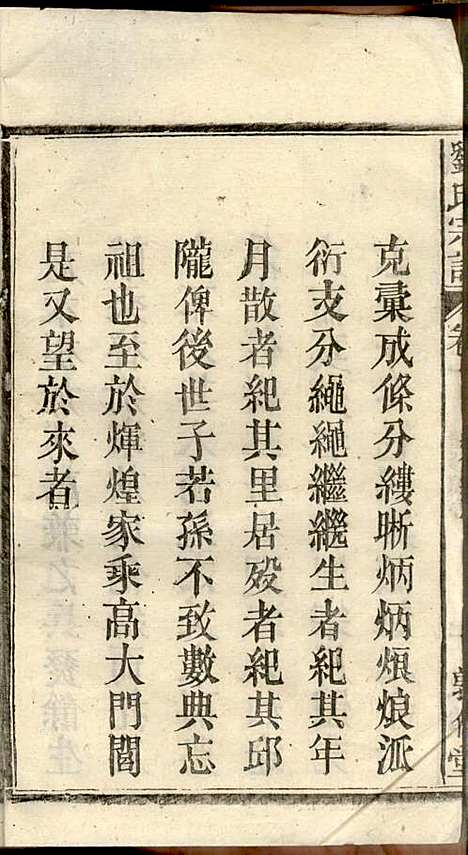 劉氏宗譜
卷
堂
克彙成條分縷晰炳炳烺烺派
衍支分繩繩繼繼生者紀其年
月散者紀其里居歿者紀其邱
隴俾後世子若孫不致數典忘
祖也至於煇煌家乘高大門閭
是又望於來者